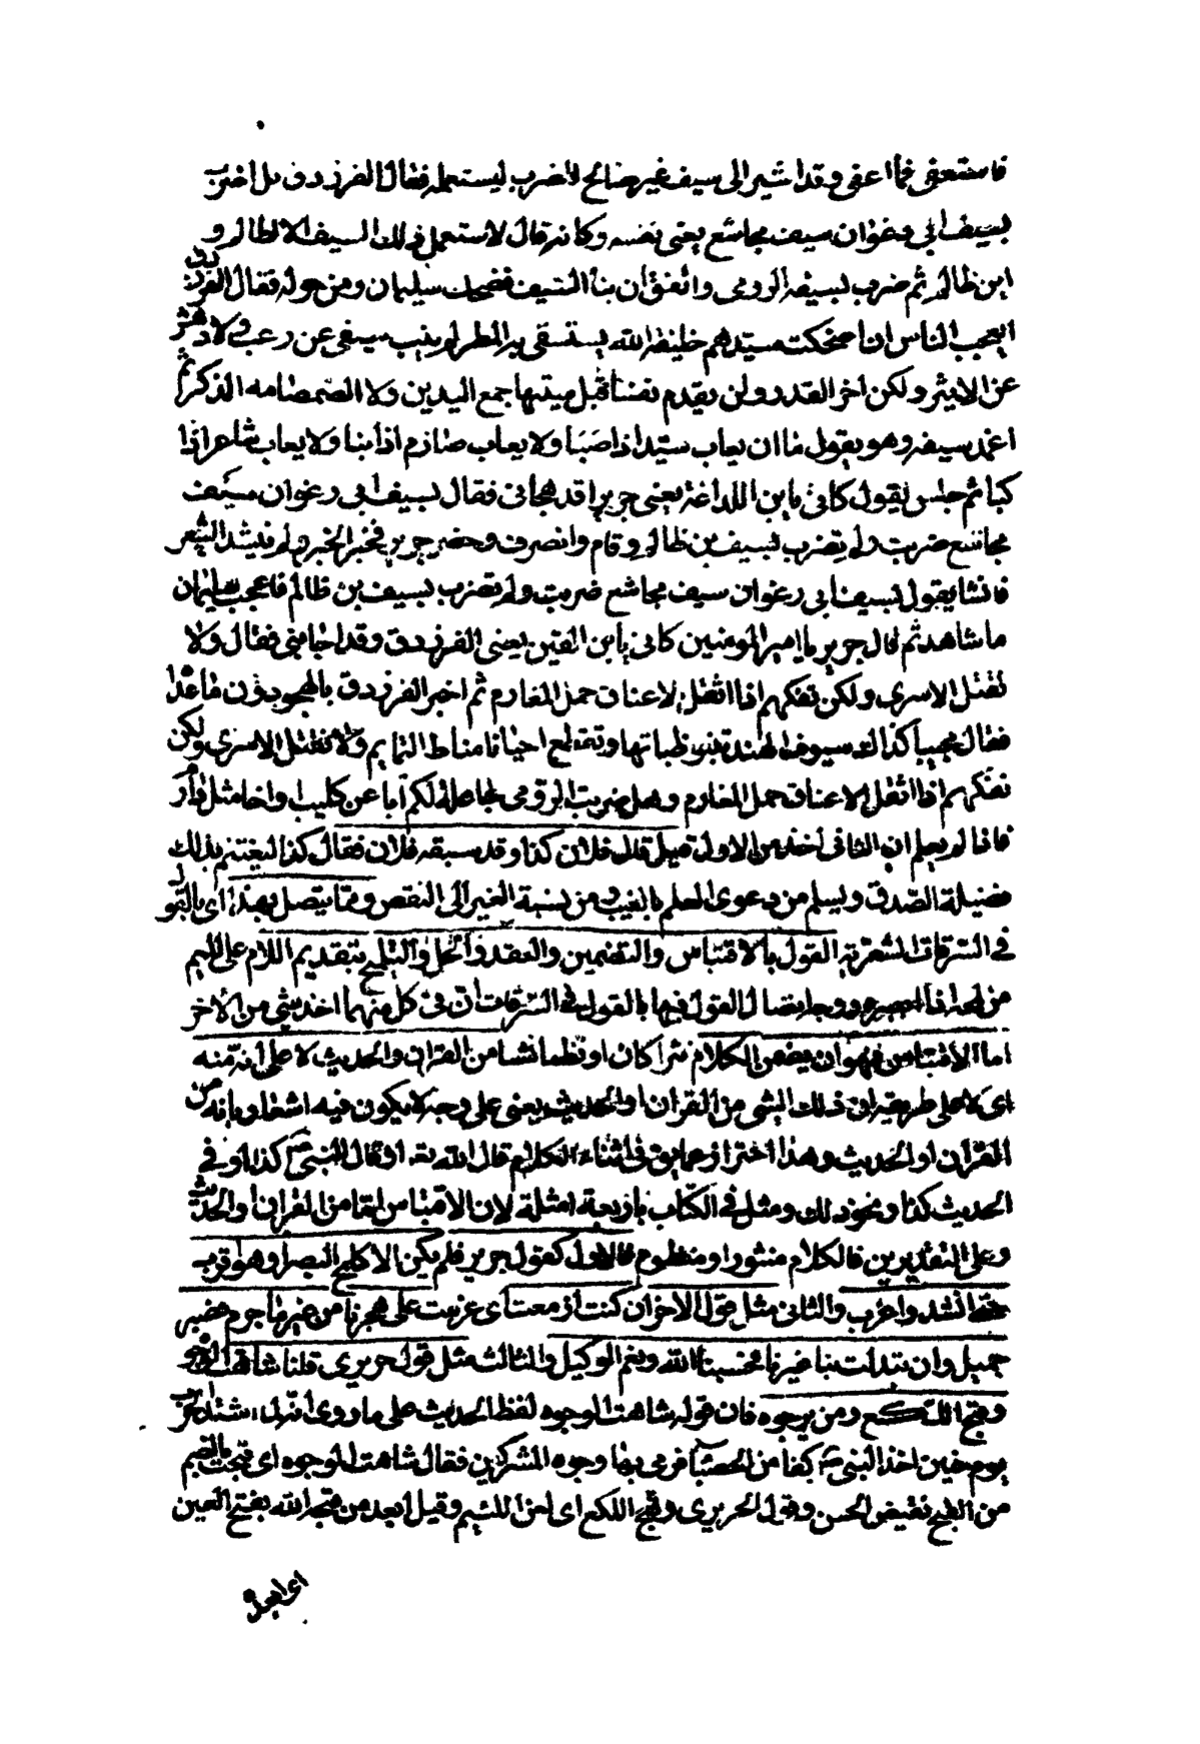 فاستعفى فما اعفى وقد اشير الى سيف غير صالح للضرب ليستعمله فقال الفرزدق بل اضرب
بسيف ابي رغوان سيف مجاشع يعني نفسه وكانه قال لا يستعمل ذلك السيف الا ظالم و
ابن ظالم ثم ضرب بسيفه الرومي واتفق ان نبا السيف فضحك سليمان ومن حوله فقال الفرزدق
ايعجب الناس ان اضحكت سيدهم خليفة الله يستسقى به المطر لم ينب سيفي عن رعب ولا دهش
عن الاسير ولكن اخر القدر ولن يقدم نفسا قبل ميتتها جمع اليدين ولا الصمصامة الذكر ثم
اغمد سيفه وهو يقول ما ان يعاب سيد اذا صبا ولا يعاب صارم اذا نبا ولا يعاب شاعر اذا
كبا ثم جلس يقول كاني بابن المراغة يعني جريرا قد هجاني فقال بسيف ابي رغوان سيف
مجاشع ضربت ولم تضرب بسيف بن ظالم وقام وانصرف وحضر جرير فخبر الخبر ولم ينشد الشعر
فانشا يقول بسيف ابي رغوان سيف مجاشع ضربت ولم تضرب بسيف بن ظالم فاعجب سليمان
ما شاهد ثم قال جرير يا امير المومنين كاني بابن القين يعني الفرزدق وقد اجابني فقال ولا
نقتل الاسرى ولكن نفكهم اذا اثقل الاعناق حمل المغارم ثم اخبر الفرزدق بالهجو دون ما عداه
فقال مجيبا كذاك سيوف الهند تنبو ظباتها وتقطع احيانا مناط التمايم ولا نقتل الاسرى ولكن
نفكهم اذا اثقل الاعناق حمل المغارم وهل ضربة الرومي جاعلة لكم ابا عن كليب او اخا مثل دارم
فاذا لم يعلم ان الثاني اخذ من الاول قيل قال فلان كذا وقد سبقه فلان فقال كذا ليغتنم بذلك
فضيلة الصدق ويسلم من دعوى العلم بالغيب ومن نسبة الغير الى النقص ومما يتصل بهذا اي بالقول
في السرقات الشعرية القول بالاقتباس والتضمين والعقد والحل والتلميح بتقديم اللام على الميم
من لمحه اذا ابصره ووجه ايصال القول فيها بالقول في السرقات ان في كل منهما اخذ شي من الاخر
اما الاقتباس فهو ان يضمن الكلام نثرا كان او نظما شيا من القران والحديث لا على انه منه
اي لا على طريقة ان ذلك الشي من القران او الحديث يعني على وجه لا يكون فيه اشعار بانه من
القران او الحديث وهذا احتراز عما يق في اثناء الكلام قال الله تعه او قال النبي ص كذا او في
الحديث كذا ونحو ذلك ومثل في الكتاب باربعة امثلة لان الاقتباس اما من القران او الحديث
وعلى التقديرين فالكلام منثور او منظوم فالاول كقول جرير فلم يكن الا كلمح البصر او هو اقرب
حتى انشد واغرب والثاني مثل قول الاخر ان كنت ازمعت اي عزمت على هجرنا من غير ما جرم فصبر
جميل وان تبدلت بنا غيرنا فحسبنا الله ونعم الوكيل والثالث مثل قول حريري قلنا شاهت الوجوه
وقبح اللكع ومن يرجوه فان قوله شاهت الوجوه لفظ الحديث على ما روي انه لما اشتد الحرب
يوم حنين اخذ النبي ص كفا من الحصباء فرمى بها وجوه المشركين فقال شاهت الوجوه اي قبحت بالضم
من القبح نقيض الحسن وقول الحريري وقبح اللكع اي لعن اللئيم وقيل ابعد من قبحه الله بفتح العين
اي ابعده